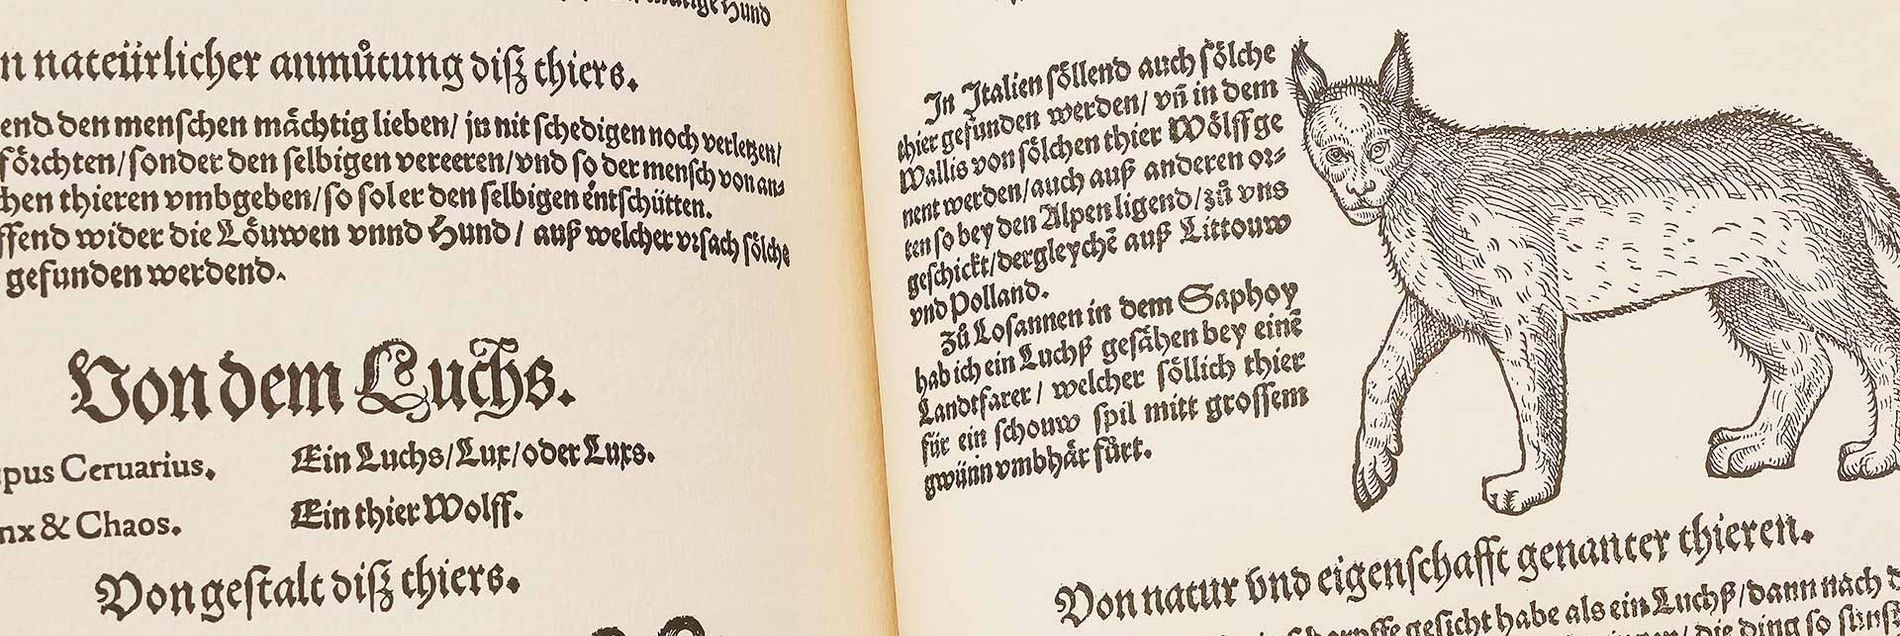 Hund
n nateürlicher anmůtung diß thiers.
end den menschen mächtig lieben/ jn nit schedigen noch verletzen/
förchten/ sonder den selbigen vereeren/ vnd so der mensch von an⸗
chen thieren vmbgeben/ so sol er den selbigen entschütten.
ffend wider die Löuwen vnnd Hund/ auß welcher vrsach sölche
gefunden werdend.
Von dem Luchs.
pus Ceruarius. Ein Luchs/ Lux/ oder Luxs.
nx & Chaos. Ein thier Wolff.
Von gestalt diß thiers.
In Italien söllend auch sölche
thier gefunden werden/ vñ in dem
Wallis von sölchen thier Wölff ge
nent werden/ auch auß anderen or⸗
ten so bey den Alpen ligend/ zů vns
geschickt/ dergleychē auß Littouw
vnd Polland.
Zů Losannen in dem Saphoy
hab ich ein Luchß gesähen bey einē
Landtfarer/ welcher söllich thier
für ein schouw spil mitt grossem
gwünn vmbhär fürt.
Von natur vnd eigenschafft genanter thieren.
gesicht habe als ein Luchß/ dann nach d
die ding so